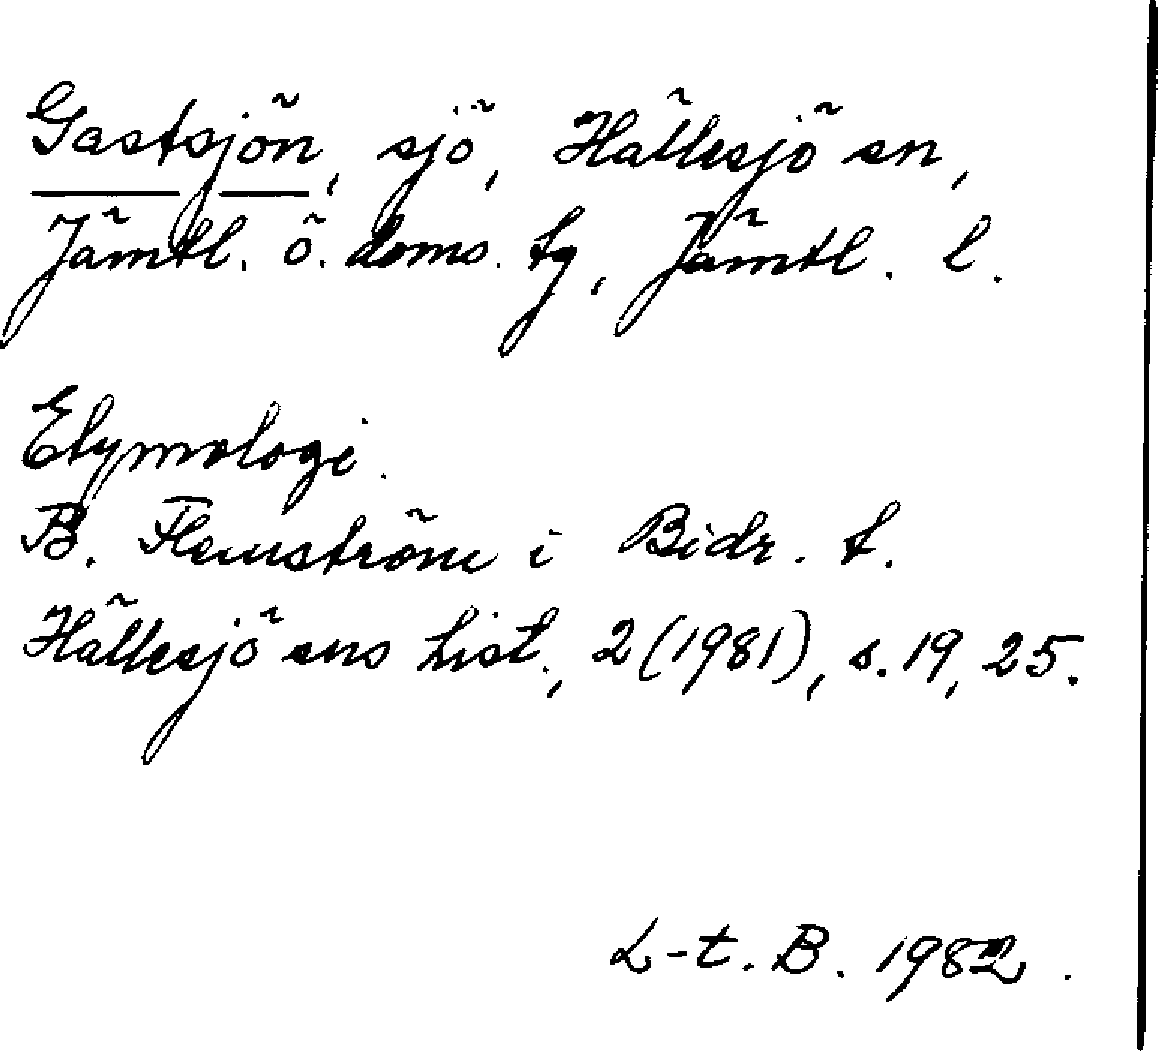 Gastsjön, sjö, Hällesjö sn,
Jämtl. ö. doms. tg, Jämtl. l.
Etymologi.
B. Flemström i Bidr. t.
Hällesjö sns hist., 2 (1981), s. 19, 25.
L-t. B. 1982.